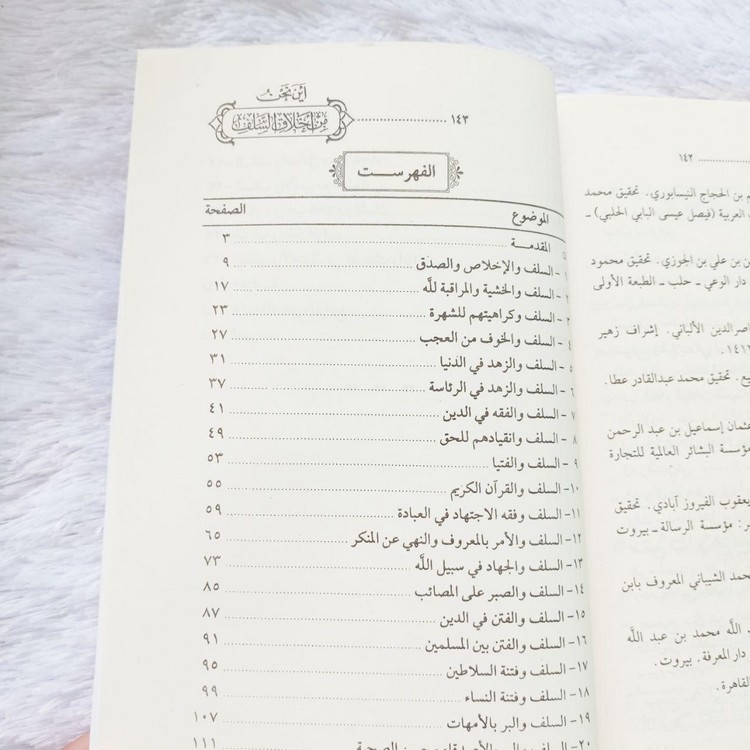 أين نحن
من أخلاق السلف
١٤٣
الفهرست
الموضوع الصفحة
المقدمة ٣
١ - السلف والإخلاص والصدق ٩
٢ - السلف والخشية والمراقبة لله ١٧
٣ - السلف وكراهيتهم للشهرة ٢٣
٤ - السلف والخوف من العجب ٢٧
٥ - السلف والزهد في الدنيا ٣١
٦ - السلف والزهد في الرئاسة ٣٧
٧ - السلف والفقه في الدين ٤١
٨ - السلف وانقيادهم للحق ٤٩
٩ - السلف والفتيا ٥٣
١٠- السلف والقرآن الكريم ٥٥
١١- السلف وفقه الاجتهاد في العبادة ٥٩
١٢- السلف والأمر بالمعروف والنهي عن المنكر ٦٥
١٣- السلف والجهاد في سبيل الله ٧٣
١٤- السلف والصبر على المصائب ٨٥
١٥- السلف والفتن في الدين ٨٧
١٦- السلف والفتن بين المسلمين ٩١
١٧- السلف وفتنة السلاطين ٩٥
١٨- السلف وفتنة النساء ٩٩
١٩- السلف والبر بالأمهات ١٠٧
٢٠- السلف ١١١
١٤٢
بن الحجاج النيسابوري. تحقيق محمد
العربية (فيصل عيسى البابي الحلبي) ـ
بن علي بن الجوزي. تحقيق محمود
دار الوعي ـ حلب ـ الطبعة الأولى
الدين الألباني. إشراف زهير
تحقيق محمد عبدالقادر عطا.
عثمان إسماعيل بن عبد الرحمن
مؤسسة البشائر العالمية للتجارة
يعقوب الفيروز آبادي. تحقيق
مؤسسة الرسالة ـ بيروت
الشيباني المعروف بابن
الله محمد بن عبد الله
دار المعرفة. بيروت.
القاهرة.